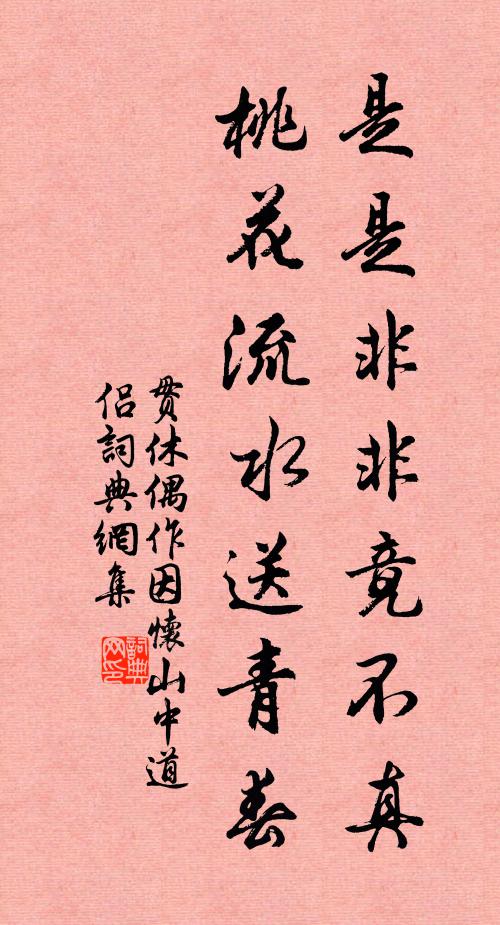 是是非非竟不真
桃花流水送青春
貫休偶作因懷山中道
侶詞典網集
詞典
网印